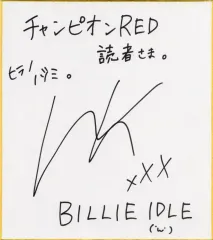 チャンピオンRED
読者さま。
ヒラノノゾミ。
xXX
BILLIE IDLE
('ω')